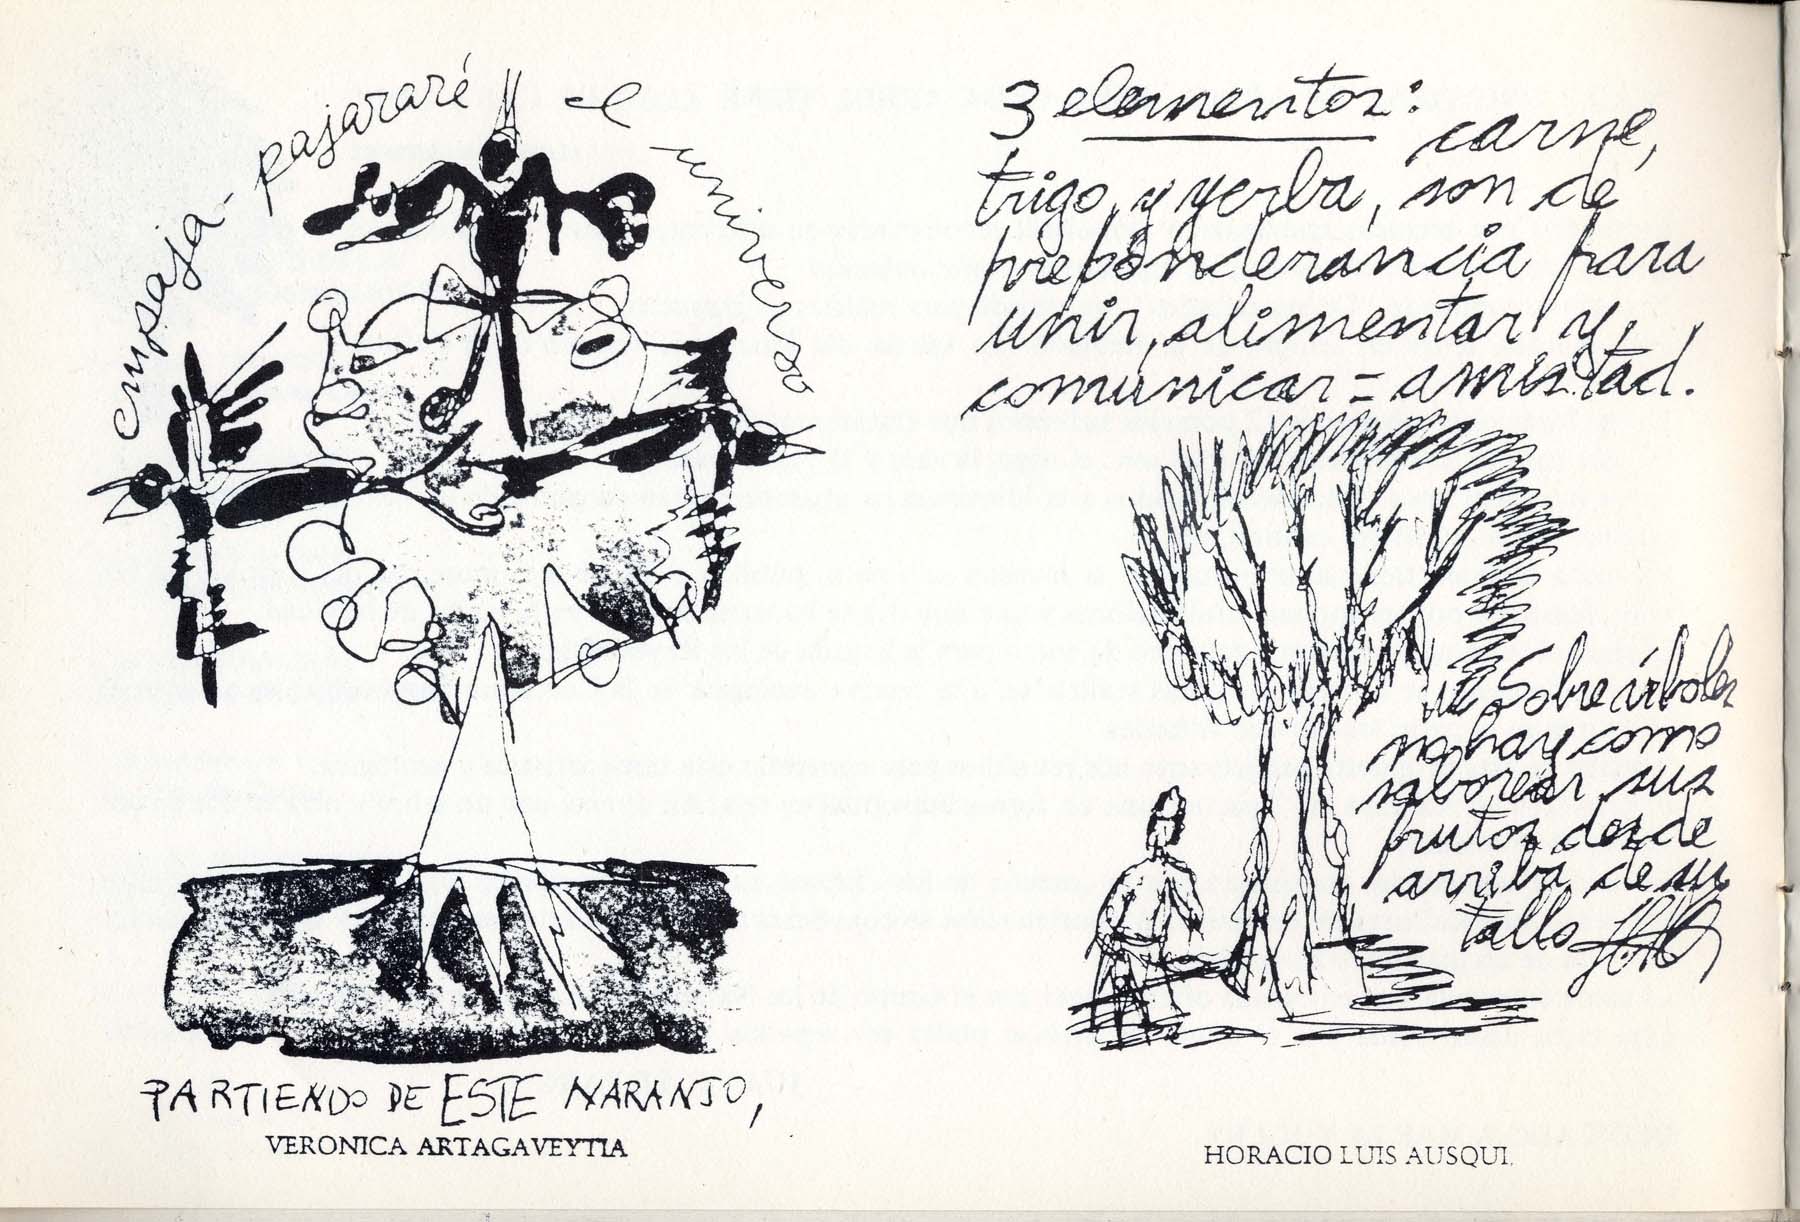 empaja-pajararé el universo
PARTIENDO DE ESTE NARANJO,
VERONICA ARTAGAVEYTIA
3 elementos: carne,
trigo, y yerba, son de
preponderancia para
unir, alimentar y
comunicar = amistad.
Sobre árboles
no hay como
saborear sus
frutos desde
arriba de su
tallo
HORACIO LUIS AUSQUI.